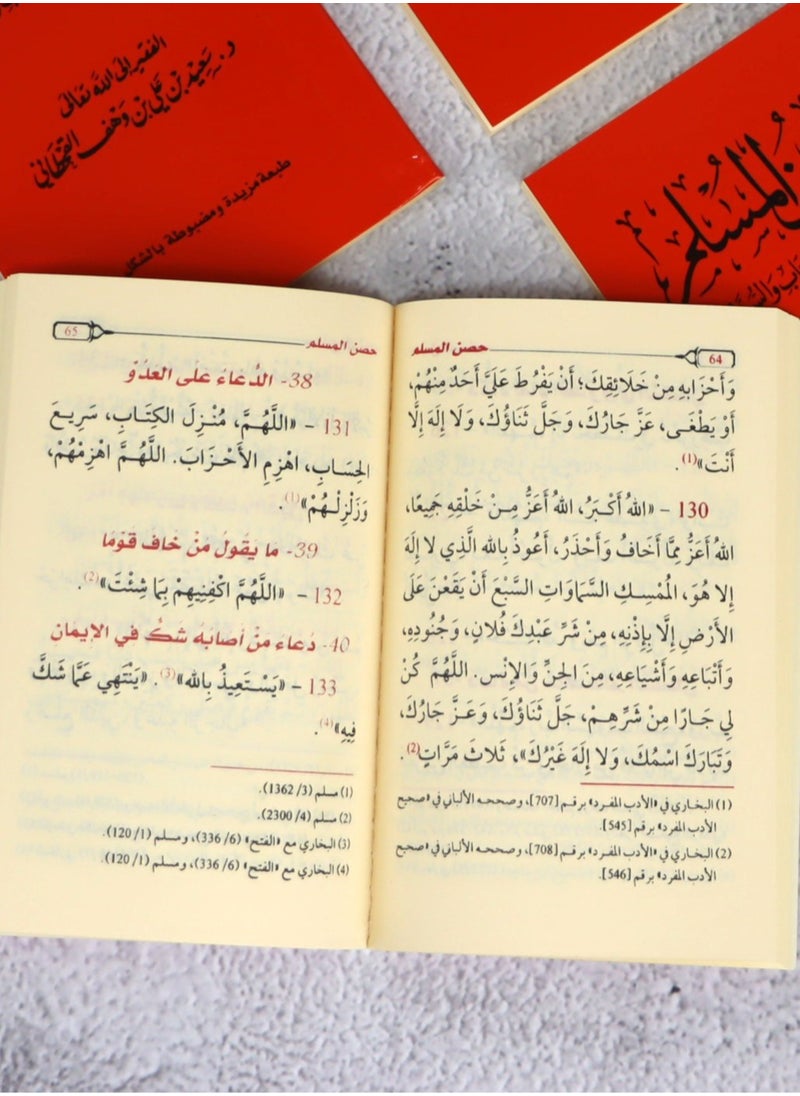 الفقير إلى الله تعالى
د. سعيد بن علي بن وهف القحطاني
طبعة مزيدة ومضبوطة بالشكل
المسلم
64
حصن المسلم
وَأَحْزَابِهِ مِنْ خَلَائِقِكَ؛ أَنْ يَفْرُطَ عَلَيَّ أَحَدٌ مِنْهُمْ،
أَوْ يَطْغَى، عَزَّ جَارُكَ، وَجَلَّ ثَنَاؤُكَ، وَلَا إِلَهَ إِلَّا
أَنْتَ»(1).
130 – «اللهُ أَكْبَرُ، اللهُ أَعَزُّ مِنْ خَلْقِهِ جَمِيعًا،
اللهُ أَعَزُّ مِمَّا أَخَافُ وَأَحْذَرُ، أَعُوذُ بِاللهِ الَّذِي لا إِلَهَ
إِلا هُوَ، المُمْسِكِ السَّمَاوَاتِ السَّبْعَ أَنْ يَقَعْنَ عَلَى
الأَرْضِ إِلَّا بِإِذْنِهِ، مِنْ شَرِّ عَبْدِكَ فُلَانٍ، وَجُنُودِهِ،
وَأَتْبَاعِهِ وَأَشْيَاعِهِ، مِنَ الجِنِّ وَالإِنْسِ. اللَّهُمَّ كُنْ
لِي جَارًا مِنْ شَرِّهِمْ، جَلَّ ثَنَاؤُكَ، وَعَزَّ جَارُكَ،
وَتَبَارَكَ اسْمُكَ، وَلا إِلَهَ غَيْرُكَ»، ثَلاثَ مَرَّاتٍ(2).
(1) البخاري في «الأدب المفرد» برقم [707]، وصححه الألباني في «صحيح
الأدب المفرد» برقم [545].
(2) البخاري في «الأدب المفرد» برقم [708]، وصححه الألباني في «صحيح
الأدب المفرد» برقم [546].
65
حصن المسلم
38- الدُّعَاءُ عَلَى العَدُوِّ
131 – «اللَّهُمَّ، مُنْزِلَ الكِتَابِ، سَرِيعَ
الحِسَابِ، اهْزِمِ الأَحْزَابَ. اللَّهُمَّ اهْزِمْهُمْ،
وَزَلْزِلْهُمْ»(1).
39- مَا يَقُولُ مَنْ خَافَ قَوْمًا
132 – «اللَّهُمَّ اكْفِنِيهِمْ بِمَا شِئْتَ»(2).
40- دُعَاءُ مَنْ أَصَابَهُ شَكٌّ فِي الإِيمَانِ
133 – «يَسْتَعِيذُ بِاللهِ»(3). «يَنْتَهِي عَمَّا شَكَّ
فِيهِ»(4).
(1) مسلم (3/ 1362).
(2) مسلم (4/ 2300).
(3) البخاري مع «الفتح» (6/ 336)، ومسلم (1/ 120).
(4) البخاري مع «الفتح» (6/ 336)، ومسلم (1/ 120).